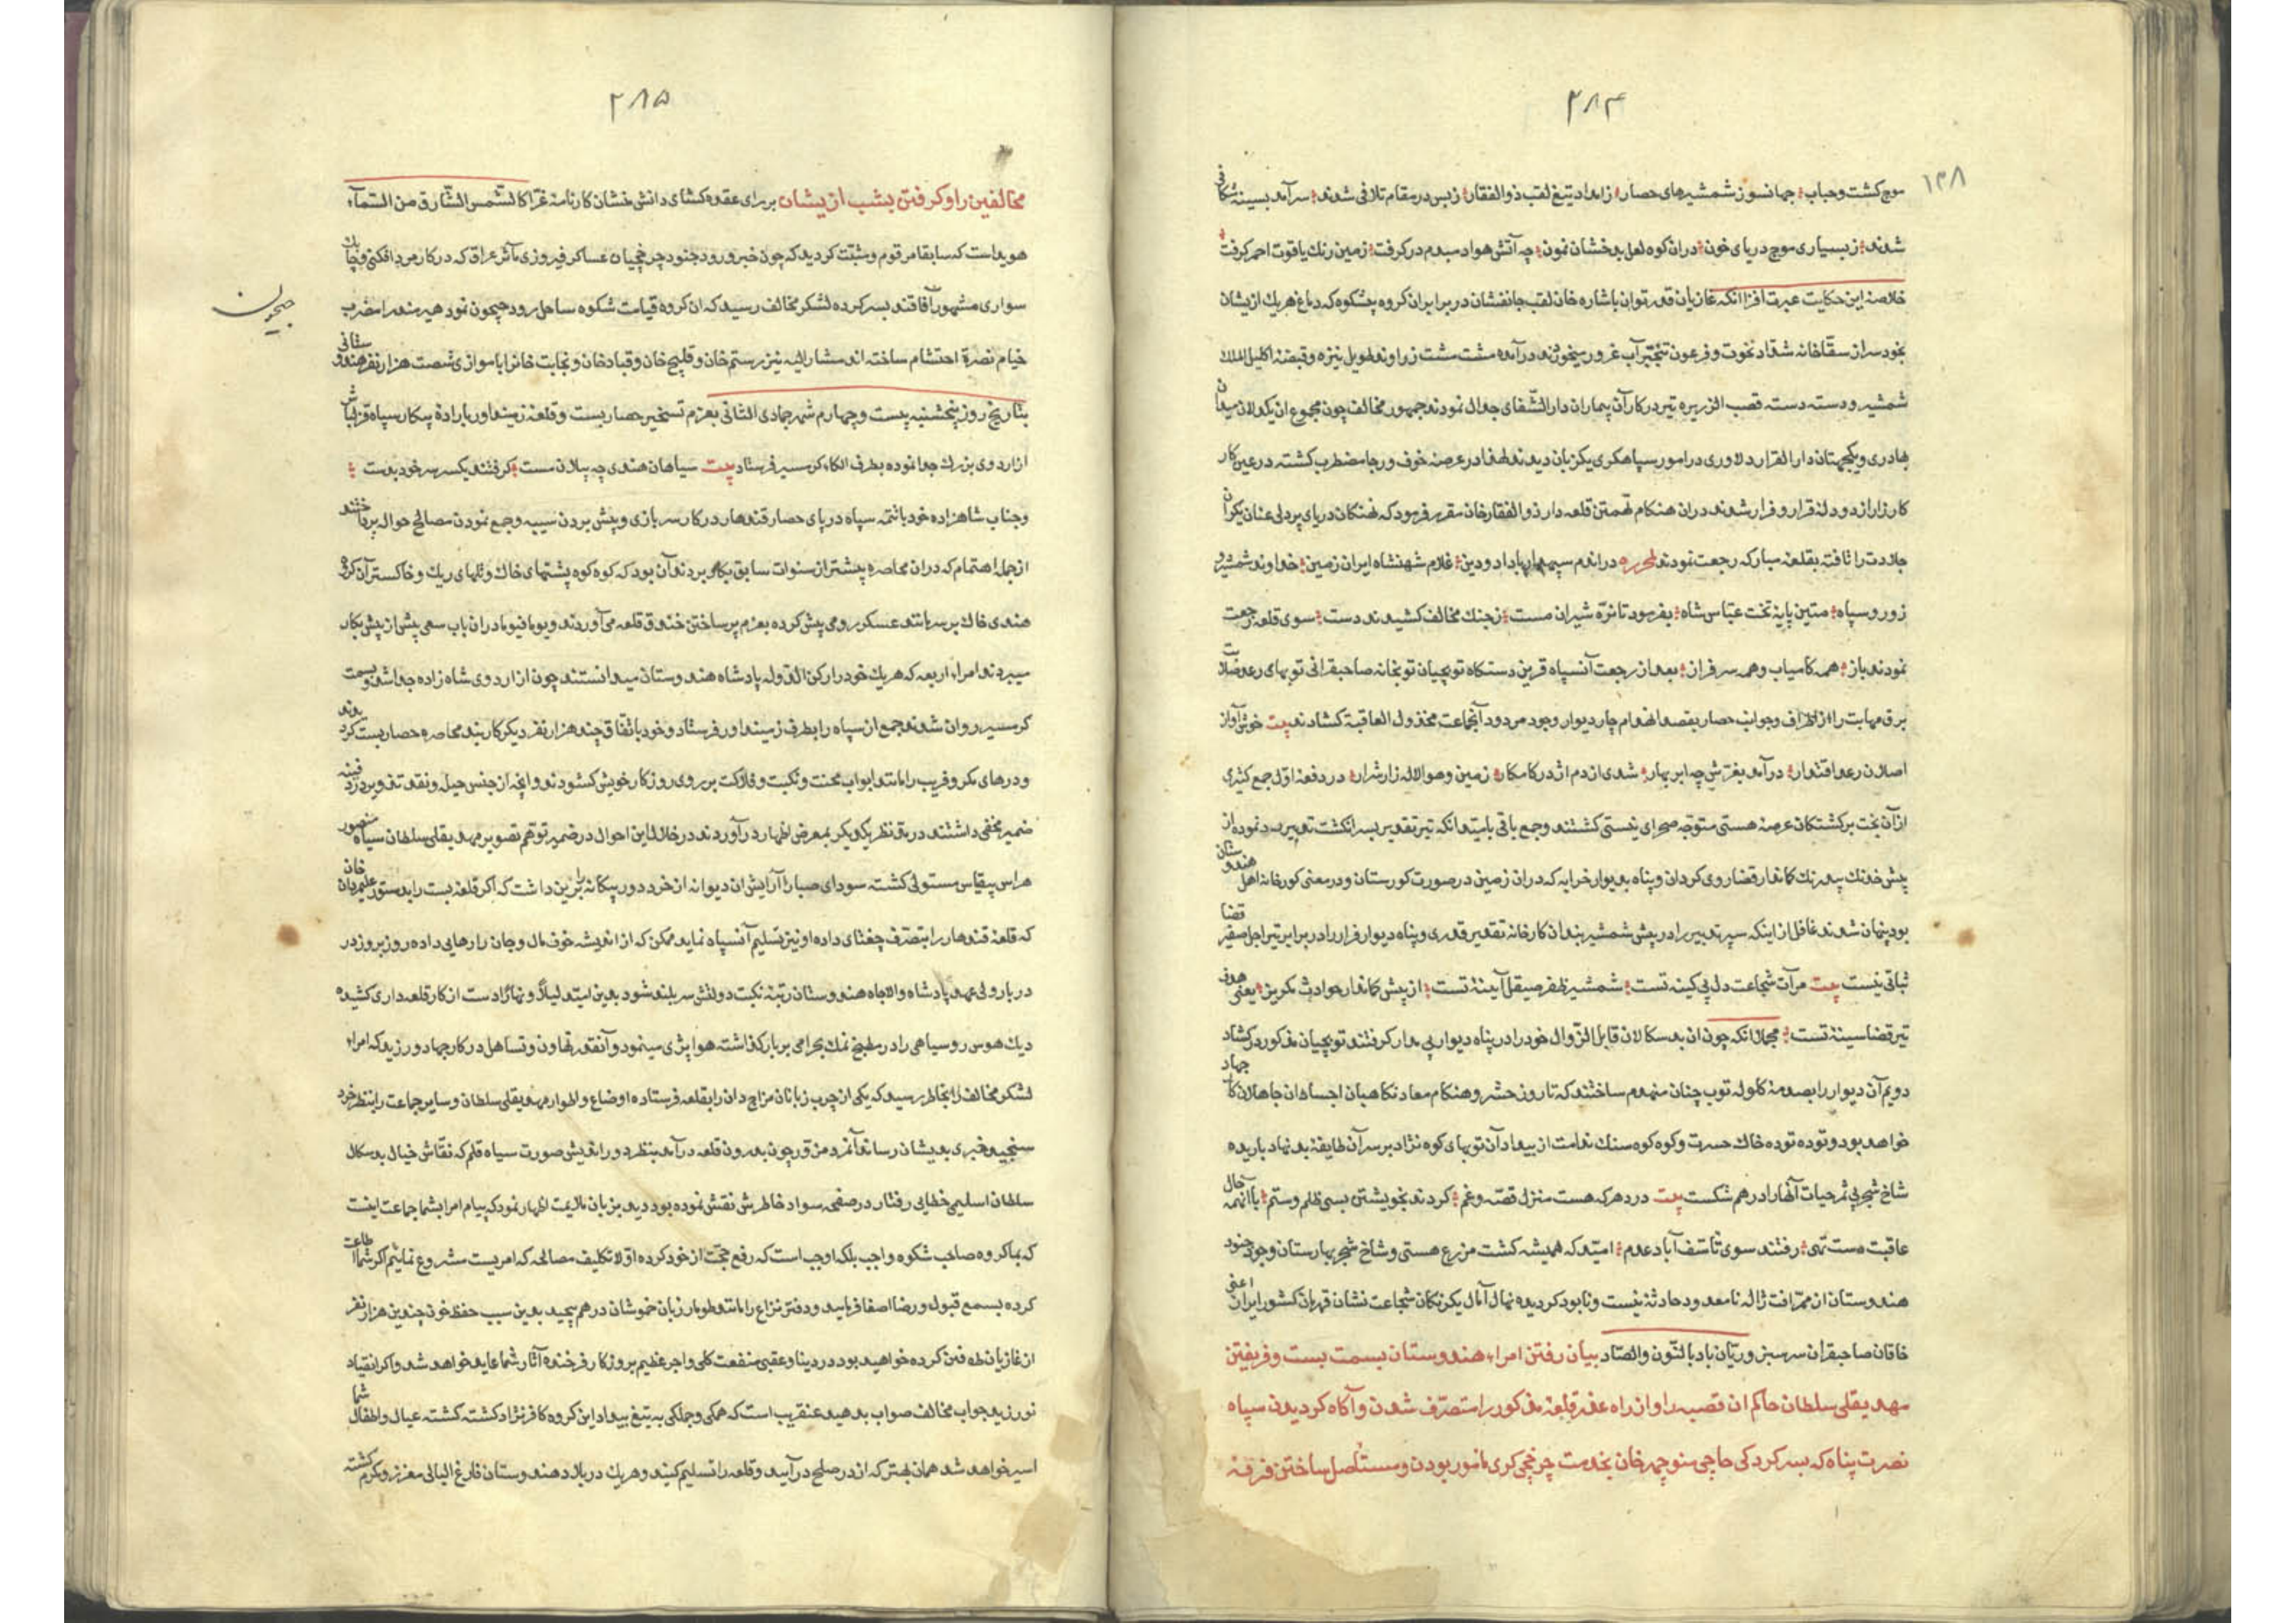 ۲۸۴
۱۳۸
موج کشت و حباب جهانسوز شمشیرهای حصار ز امداد تیغ لقب ذوالفقار ز بس در مقام تلافی شدند سرآمد بسینه شکافی
شدند ز بسیاری موج دریای خون دران کوه لعل بدخشان نمون چه آتش هوا دمبدم در کرفت زمین رنک یاقوت احمر کرفت
خلاصه این حکایت عبرت افزا انکه غازیان قدر توان باشاره خان لقب جانفشان در برابر ان کروه پشکوه که دماغ هریك ازیشان
شمشیر و دسته دسته قصب الزریره تیر در کار آن بیماران دار الشفای جدال نمودند جمهور مخالف چون مجموع ان یکدلان میدان
بهادری و یکجهتان دار القرار دلاوری در امور سپاهکری یکزبان دیدند لهذا در عرصه خوف و رجا مضطرب کشته در عین کار
کارزار از دو دله قرار و فرار شدند دران هنکام تهمتن قلعه دار ذوالفقارخان مقرر فرمود که نهنکان دریای پردلی عنان یکران
جلادت را تافته بقلعه مبارکه رجعت نمودند لمحرره دراندم سپهدار با داد و دین غلام شهنشاه ایران زمین خداوند شمشیر و
زور و سپاه متین پایه تخت عباس شاه بفرمود تا نره شیران مست ز جنك مخالف کشیدند دست سوی قلعه رجعت
نمودند باز همه کامیاب و همه سرفراز بعد از رجعت آنسپاه قرین دستکاه توپچیان توپخانه صاحبقرانی توپهای رعد صلابت
برق مهابت را از اطراف و جوانب حصار بقصد انهدام چار دیوار وجود مردود آنجماعت مخذول العاقبة کشادند بیت خوش آواز
اصلان رعد اقتدار درآمد بغرش چه ابر بهار شدی از دم اژدر کامکار زمین و هوا لاله زار شرار در دفعه اول جمع کثیری
از آن بخت برکشتکان عرصه هستی متوجه صحرای نیستی کشتند و جمع باقی بامید انکه تیر تقدیر بسرانکشت تدبیر رد نموده از
پیش خدنك بیدرنك کماندار قضا روی کردان و پناه بدیوار خرابه که دران زمین در صورت کورستان و در معنی کورخانه اهل هندوستان
بود پنهان شدند غافل از اینکه سپر تدبیر را در پیش شمشیر بندان کارخانه تقدیر قدری و پناه دیوار فرار را در برابر تیر اجل صفیر قضا
ثباتی نیست بیت مرآت شجاعت دل بی کینه تست شمشیر ظفر صیقل آیینه تست از پیش کماندار حوادث مکریز یعنی هدف
تیر قضا سینه تست مجملا انکه چون ان بدسکالان قابل الزوال خود را در پناه دیوار بی مدار کرفتند توپچیان مذکور در کشاد
دویم آن دیوار را بصدمه کلوله توپ چنان منهدم ساختند که تا روز حشر و هنکام معاد نکاهبان اجساد ان جاهلان کار جهاد
خواهد بود و توده توده خاك حسرت و کوه کوه سنك ندامت از بیداد آن توپهای کوه نژاد بر سر آن طایفه بدنهاد باریده
شاخ شجر بی ثمر حیات آنها را در هم شکست بیت در دهر که هست منزل قصه و غم کردند بخویشتن بسی ظلم و ستم با آنهمه حال
عاقبت دست تهی رفتند سوی تاسف آباد عدم امید که همیشه کشت مزرع هستی و شاخ شجر بهارستان وجود جنود
هندوستان از ممر افت ژاله نامعدود حادثه نیست و نابود کردیده نهال آمال یکرنکان شجاعت نشان قهرمان کشور ایران اعنی
خاقان صاحبقران سرسبز و ریان باد بالنون والصاد بیان رفتن امراء هندوستان بسمت بست و فریفتن
مهدیقلی سلطان حاکم ان قصبه را و از راه عذر قلعه مذکور را متصرف شدن و آکاه کردیدن سپاه
نصرت پناه که بسرکردکی حاجی منوچهرخان بخدمت چرخچی کری مامور بودن و مستاصل ساختن فرقه
۲۸۵
مخالفین را و کرفتن بشب ازیشان بررای عقده کشای دانش منشان کارنامه غرا کالشمس الشارق من السماء
هویداست که سابقا مرقوم و مثبت کردید که چون خبر ورود جنود چرخچیان عساکر فیروزی مآثر عراق که در کار مرد افکنی و چابك
سواری مشهور آفاقند بسر کرده لشکر مخالف رسید که ان کروه قیامت شکوه ساحل رود جیحون نمود هیرمند را مضرب
جیحون
خیام نصرة احتشام ساخته اند مشارالیه نیز رستم خان و قلیج خان و قبادخان و نجابت خانرا با موازی شصت هزار نفر هندوستانی
بتاریخ روز پنجشنبه بیست و چهارم شهر جمادی الثانی بعزم تسخیر حصار بست و قلعه زمینداور باراده پیکار سپاه قزلباش
از اردوی بزرك جدا نموده بطرف الکاء کرمسیر فرستاد بیت سیاهان هندی چه پیلان مست کرفتند یکسر سر خود بدست
و جناب شاهزاده خود باتتمه سپاه در پای حصار قندهار در کار سربازی و پیش بردن سیبه و جمع نمودن مصالح حوال پرداختند
از جمله اهتمام که دران محاصره پیشتر از سنوات سابق بکار بردند آن بود که کوه کوه پشتهای خاك و تلهای ریك و خاکستر آن کروه
هندی خاك بر سر مانند عسکر رومی پیش کرده بعزم پر ساختن خندق قلعه می آوردند و یوما فیوما دران باب سعی پیش از پیش بکار
میبردند امراء اربعه که هریك خود را رکن الدوله پادشاه هندوستان میدانستند چون از اردوی شاه زاده جدا شده و بسمت
کرمسیر روان شدند جمع از سپاه را بطرف زمینداور فرستاد و خود باتفاق چند هزار نفر دیکر کاربند محاصره حصار بست کردیدند
و درهای مکر و فریب را مانند ابواب محنت و نکبت و فلاکت بر روی روزکار خویش کشودند و انچه از جنس حیل و نقد تذویر در دفینه
ضمیر مخفی داشتند در مد نظر یکدیکر بمعرض اظهار درآوردند در خلال این احوال در ضمیر توهم تصویر مهدیقلی سلطان سیاه منصور
هراس بیقیاس مستولی کشته سودای صبا را آرایش ان دیوانه از خرد دور بیکانه بر این داشت که اکر قلعه بست را بدستور علیمردان خان
که قلعه قندهار را بتصرف چغتای داده او نیز تسلیم آنسپاه نماید ممکن که از اندیشه خوف مال و جان را رهایی داده روز بروز در
دربار ولی عهد پادشاه والاجاه هندوستان رتبه نکبت دولتش سربلند شود بدین امید لیلا و نهارا دست از کار قلعه داری کشیده
دیك هوس روسیاهی را در مطبخ نمك بحرامی بربار کذاشته هوا پزی مینمود و آنقدر تهاون و تساهل در کار جهاد ورزید که امراء
لشکر مخالف را بخاطر رسید که یکی از چرب زبانان مزاج دان را بقلعه فرستاده اوضاع و اطوار مهدیقلی سلطان و سایر جماعت را بنظر خرد
سنجیده خبری بدیشان رساند آنمرد مزور چون بدرون قلعه درآمد بنظر دوراندیش صورت سیاه قلم که نقاش خیال بدسکال
سلطان اسلیمی خطایی رفتار در صفحه سواد خاطرش نقش نموده بود دید بزبان ملایمت اظهار نمود که پیام امرا بشما جماعت اینست
که بما کروه صاحب شکوه واجب بلکه اوجب است که رفع حجت از خود کرده اولا تکلیف مصالحه که امریست مشروع نماییم اکر شما اطاعت
کرده بسمع قبول و رضا اصغا فرمایید و دفتر نزاع را مانند طومار زبان خموشان در هم پیچید بدین سبب حفظ خون چندین هزار نفر
از غازیان طرفین کرده خواهید بود در دنیا و عقبی منفعت کلی و اجر عظیم بروزکار فرخنده آثار شما عاید خواهد شد و اکر انقیاد
نورزید جواب مخالف صواب بدهید عنقریب است که همکی و جملکی به تیغ بیداد این کروه کافرنژاد کشته کشته عیال و اطفال شما
اسیر خواهد شد همان بهتر که از در صلح درآیید و قلعه را تسلیم کنید و هریك در بلاد هندوستان فارغ البالی معزز و مکرم کشته